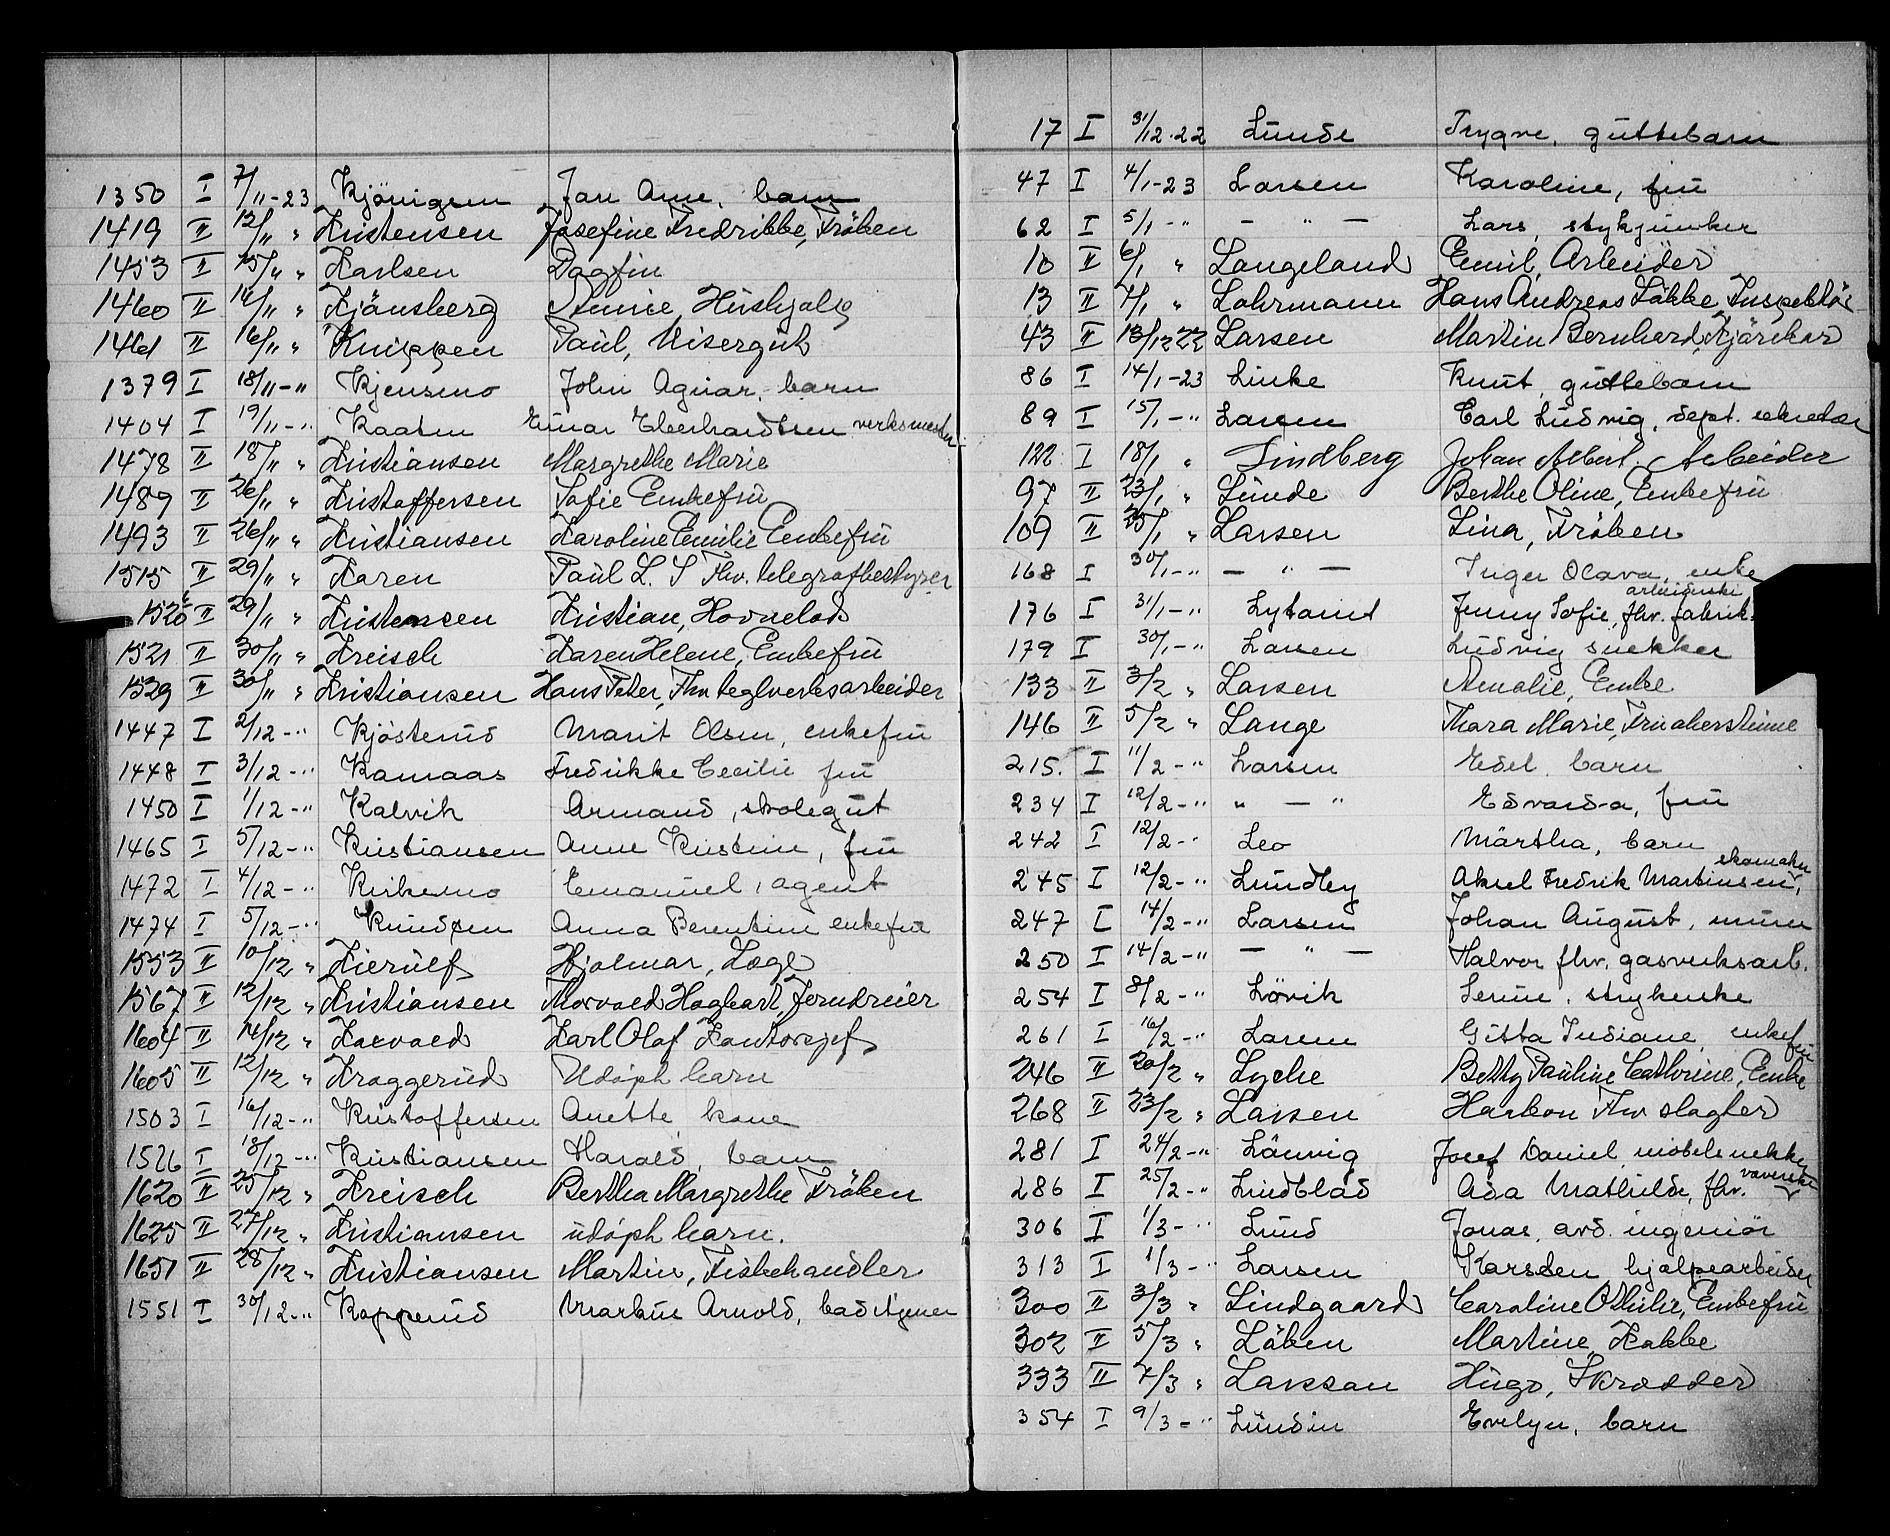 1350 I 7/11-23 Kjönigsen Jan Arne, barn
1419 II 12/11 " Kristensen Josefine Fredrikke, Fröken
1453 II 15/11 " Karlsen Dagfin
1460 II 14/11 " Kjänsberg Annie, Hüshjælp
1461 II 16/11 " Knippen Paül, Visergüt
1379 I 18/11-" Kjensmo John Agnar, barn
1404 I 19/11-" Kaaten Einar Eberhardtsen verksmester
1478 II 18/11 " Kristiansen Margrethe Marie
1489 II 26/11 " Kristoffersen Sofie Enkefrü
1493 II 26/11 " Kristiansen Karoline Emilie Enkefrü
1515 II 29/11 " Karen Paül L. S Fhv. telegrafbestyrer
1520 II 29/11 " Kristensen Kristian, Hovnelods
1521 II 30/11 " Kreisch Karen Helene, Enkefrü
1529 II 30/11 " Kristiansen Hans Peter, Fhv teglverksarbeider
1447 I 2/12-" Kjösterüd Marit Olsen, enkefrü
1448 I 3/12-" Kamaas Fredrikke Cecilie frü
1450 I 1/12-" Kalvik Armand, skolegüt
1465 I 5/12-" Kristiansen Anne Kristine, frü
1472 I 4/12-" Kirkemo Emanuel, agent
1474 I 5/12-" Knüdsen Anna Berentine enkefrü
1553 II 10/12 " Kierülf Hjalmar, Læge
1567 II 12/12 " Kristiansen Thorvald Hagbart, Jerndreier
1604 II 14/12 " Karvald Karl Olaf Kontorsjef
1605 II 12/12 " Kraggerüd Udöpt barn
1503 I 16/12-" Kristoffersen Anette, kone
1526 I 18/12-" Kristiansen Harald, barn
1620 II 25/12 " Kreisch Bertha Margrethe Fröken
1625 II 27/12 " Kristiansen üdöpt barn.
1651 II 28/12 " Kristiansen Martin, Fiskehandler
1551 I 30/12-" Kopperüd Markus Arnold,
17 I 31/12-22 Lünde Trygve, güttebarn
47 I 4/1-23 Larsen Karoline, frü
62 I 5/1-" - " - Lars, stykjunker
10 II 6/1 " Langeland Emil, Arbeider
13 II 7/1 " Lohrmann Hans Andreas Lökke, Inspektör
43 II 13/12 22 Larsen Martin Bernhard, Kjörekar
86 I 14/1-23 Linke Knut, güttebarn
89 I 15/1-" Larsen Carl Ludvig, dept. sekretær
122 I 18/1 " Lindberg Johan Albert, Arbeider
97 II 23/1 " Lünde Berthe Oline, Enkefrü
109 II 25/1 " Larsen Lina, Fröken
168 I 30/1-" - " - Inger Olava, enke
176 I I 31/1-" Lytomt Jenny Sofie, fhv. fabrik-
arbeiderske
179 I 30/1-" Larsen Ludvig snekker
133 II 3/2 " Larsen Amalie, Enke
146 II 5/2 " Lange Thora Marie,
215. I 11/2-" Larsen Edel, barn
234 I 12/2-" " - " Edvarda, frü
242 I 12/2-" Leo Märtha, barn
245 I 12/2-" Lundby Aksel Fredrik Martinsen, skomaker
247 I 14/2-" Larsen Johan August, murer
250 I 14/2-" - " - Halvor fhv. gasverksarb.
254 I 8/2-" Lövik Lerine, strykerske
261 I 16/2-" Larsen Gitta Indiane, enkefrü
246 II 20/2 " Lyche Betty Pauline Cathrine, Enke
268 II 23/2 " Larsen Haakon Fhv slagter
281 I 24/2-" Länvig Josef Daniel, möbelsnekker
286 I 25/2-" Lindblad Ada Mathilde, fhv. væverske
306 I 1/3-" Lund Jonas, avd. ingeniör
313 I 1/3-" Larsen Karsten hjælpearbeider
300 II 3/3 " Lindgaard Caroline Othilie, Enkefrü
302 II 5/3 " Löken Martine, Kokke
333 II 7/3 " Larsson Hügo, Skrædder
354 I 9/3-" Lündin Evelyn, barn